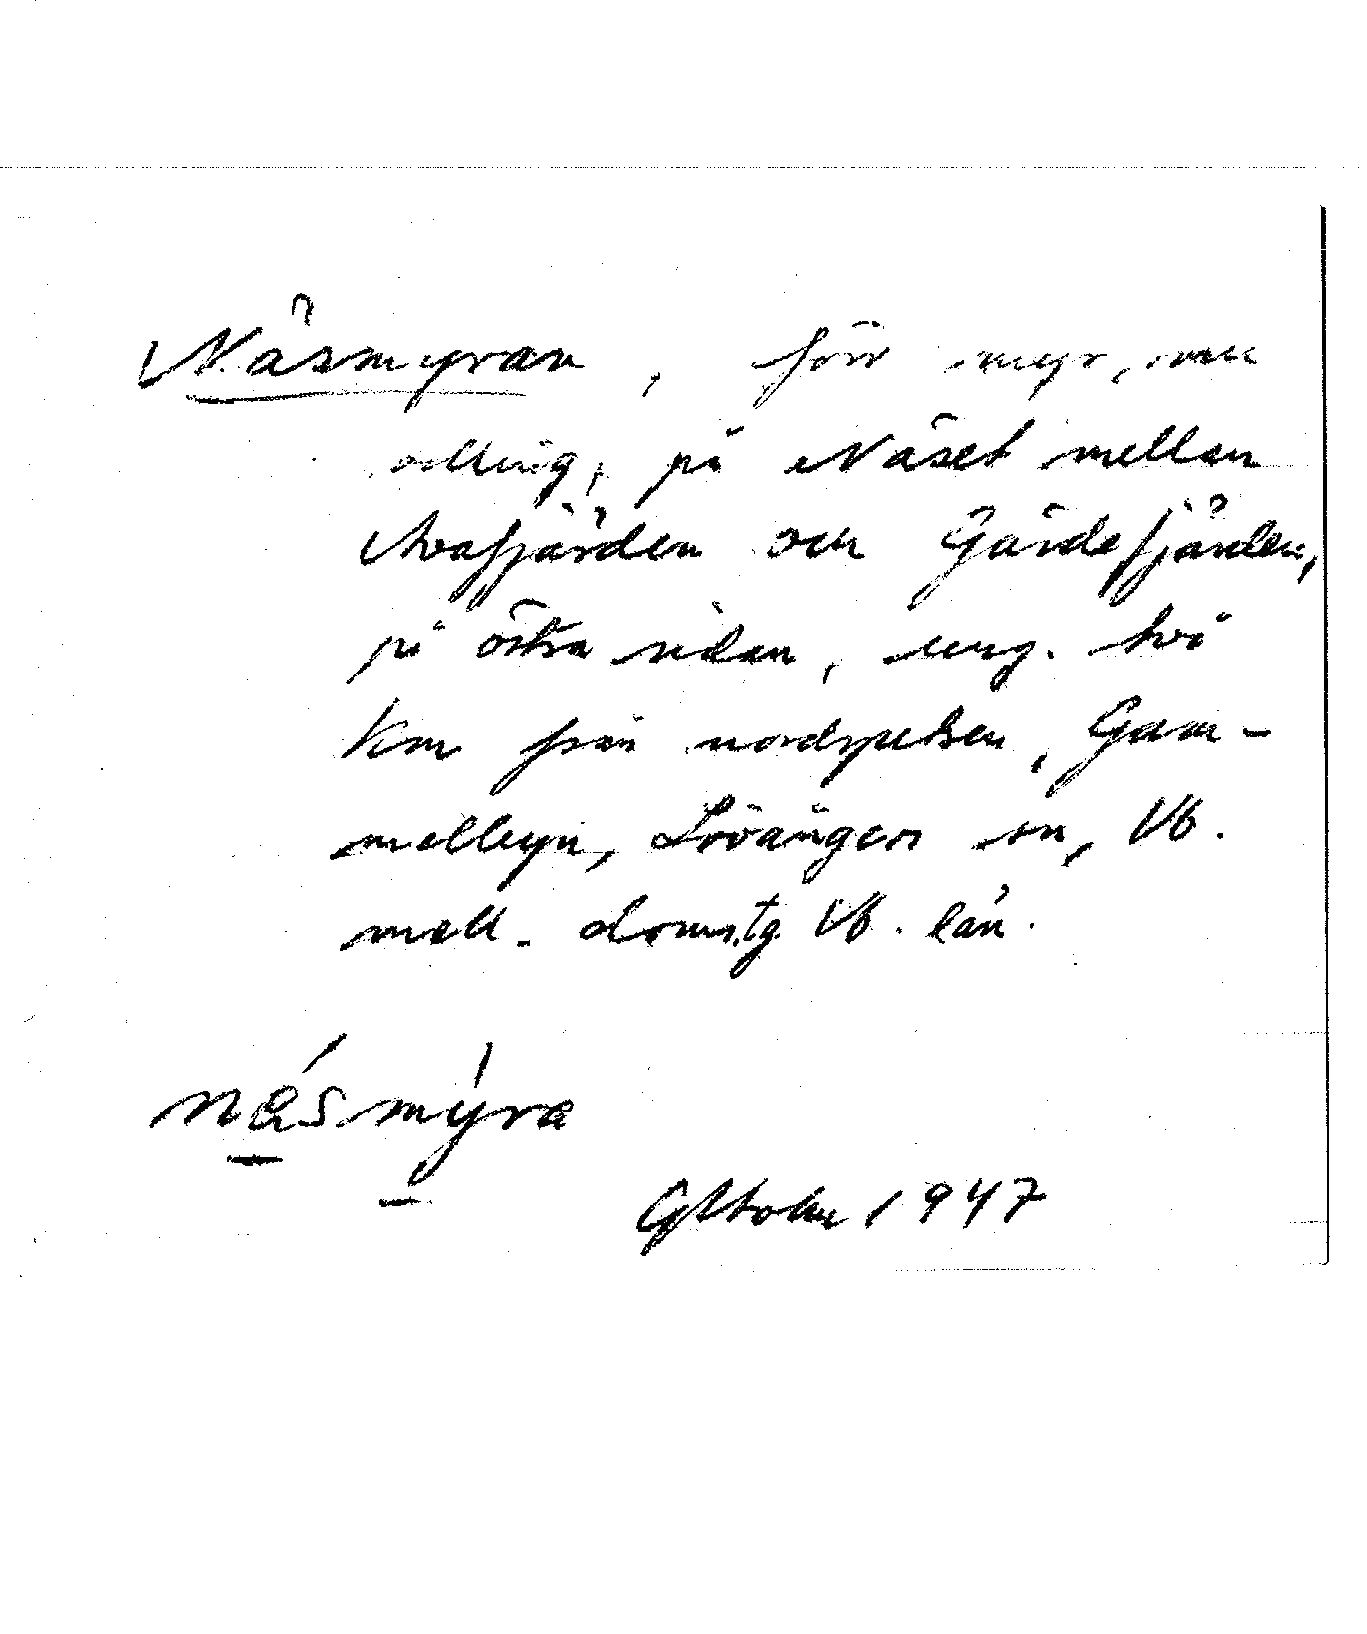 Näsmyran, förr myr, nu
odling, på Näset mellan
Avafjärden och Gärdefjärden,
på östra sidan, ung. två
km från nordspetsen, Gam-
melbyn, Lövånger sn, Vb.
mell. domstg Vb. län.
näsmyra
1947